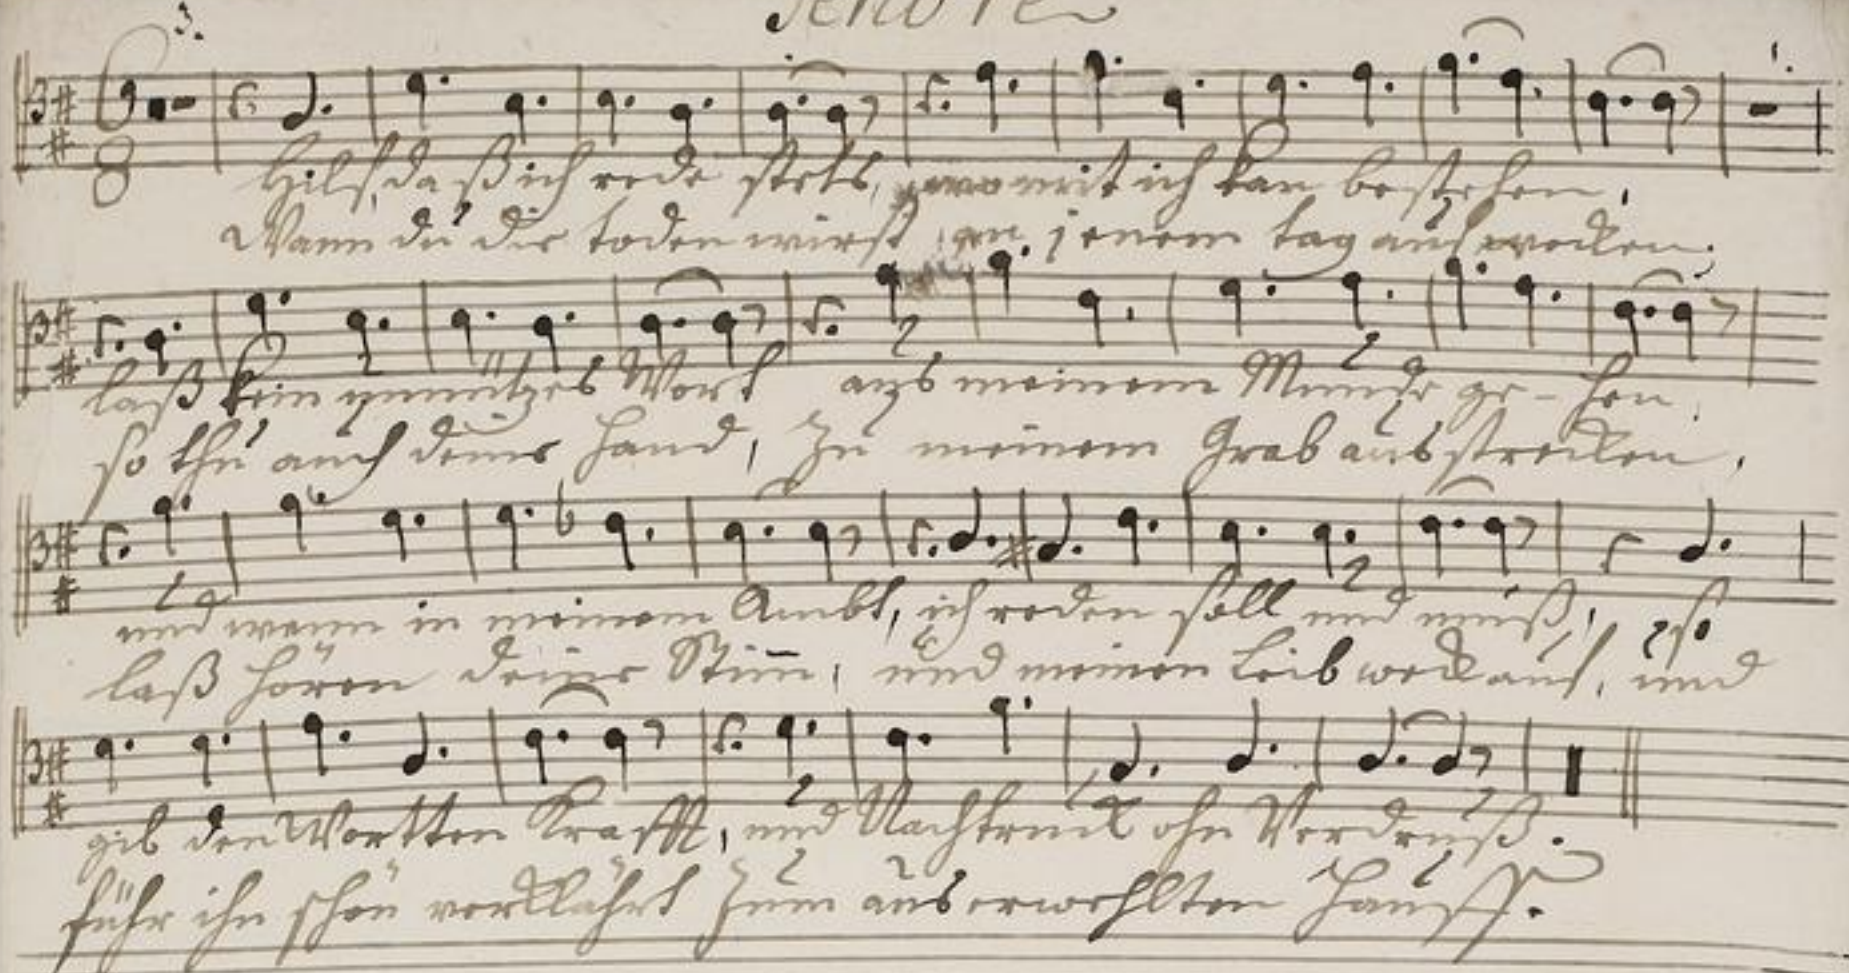 Tenore
3.
Hilf, daß ich rede stets, womit ich kan bestehen,
Wann du die toden wirst an jenem tag aufwecken,
laß kein unnützes Wort aus meinem Munde gehen,
so thu auch deine Hand, zu meinem Grab ausstrecken,
und wenn in meinem Ambt, ich reden soll und muß, so
laß hören deine Stim̄, und meinen Leib weck auf, und
gib den Wortten Krafft, und Nachtruck ohn Verdruß.
führ ihn schön verklährt zum auserwehlten Hauff.